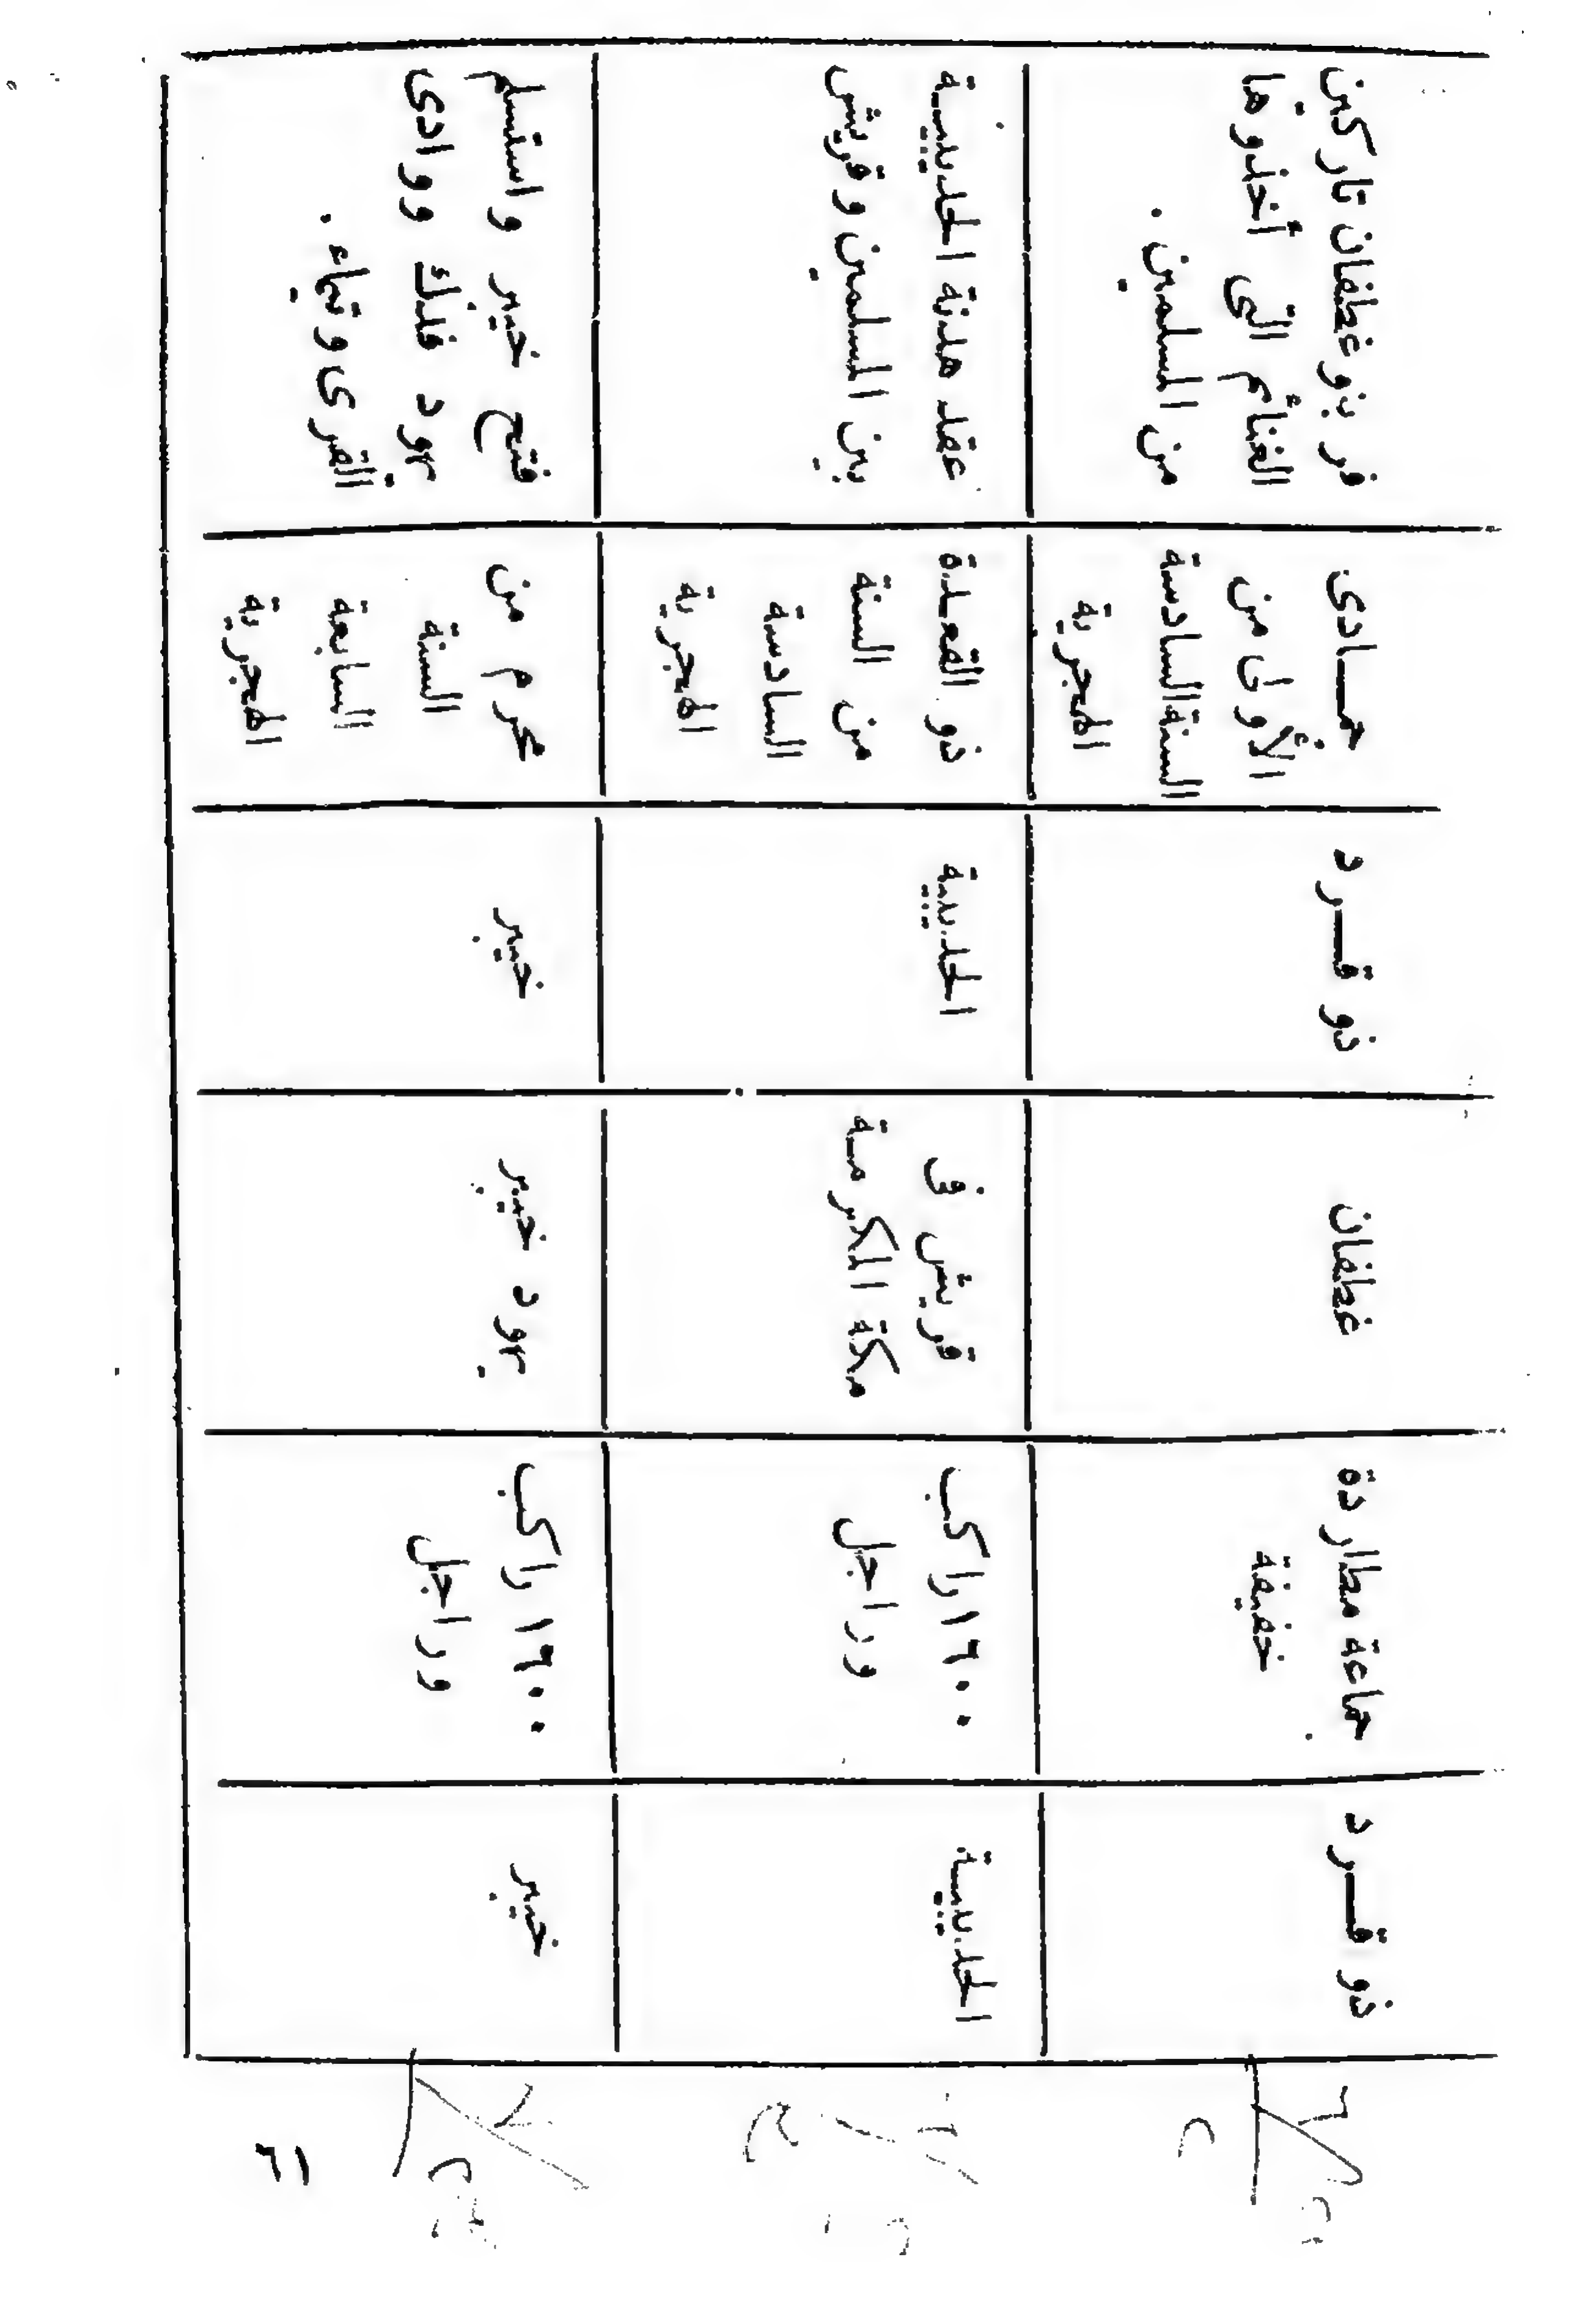 ذو قرد
جماعة مطاردة
خفيفة
غطفان
ذو قرد
جمادى
الأولى من
السنة السادسة
الهجرية
فر بنو غطفان تاركين
الغنائم التى أخذوها
من المسلمين .
الحديبية
١٦٠٠ راكب
وراجل
قريش فى
مكة المكرمة
الحديبية
ذو القعدة
من السنة
السادسة
الهجرية
عقد هدنة الحديبية
بين المسلمين وقريش
خيبر
١٦٠٠ راكب
وراجل
يهود خيبر
خيبر
محرم من
السنة
السابعة
الهجرية
فتح خيبر واستسلم
يهود فدك ووادى
القرى وتيماء .
٦١